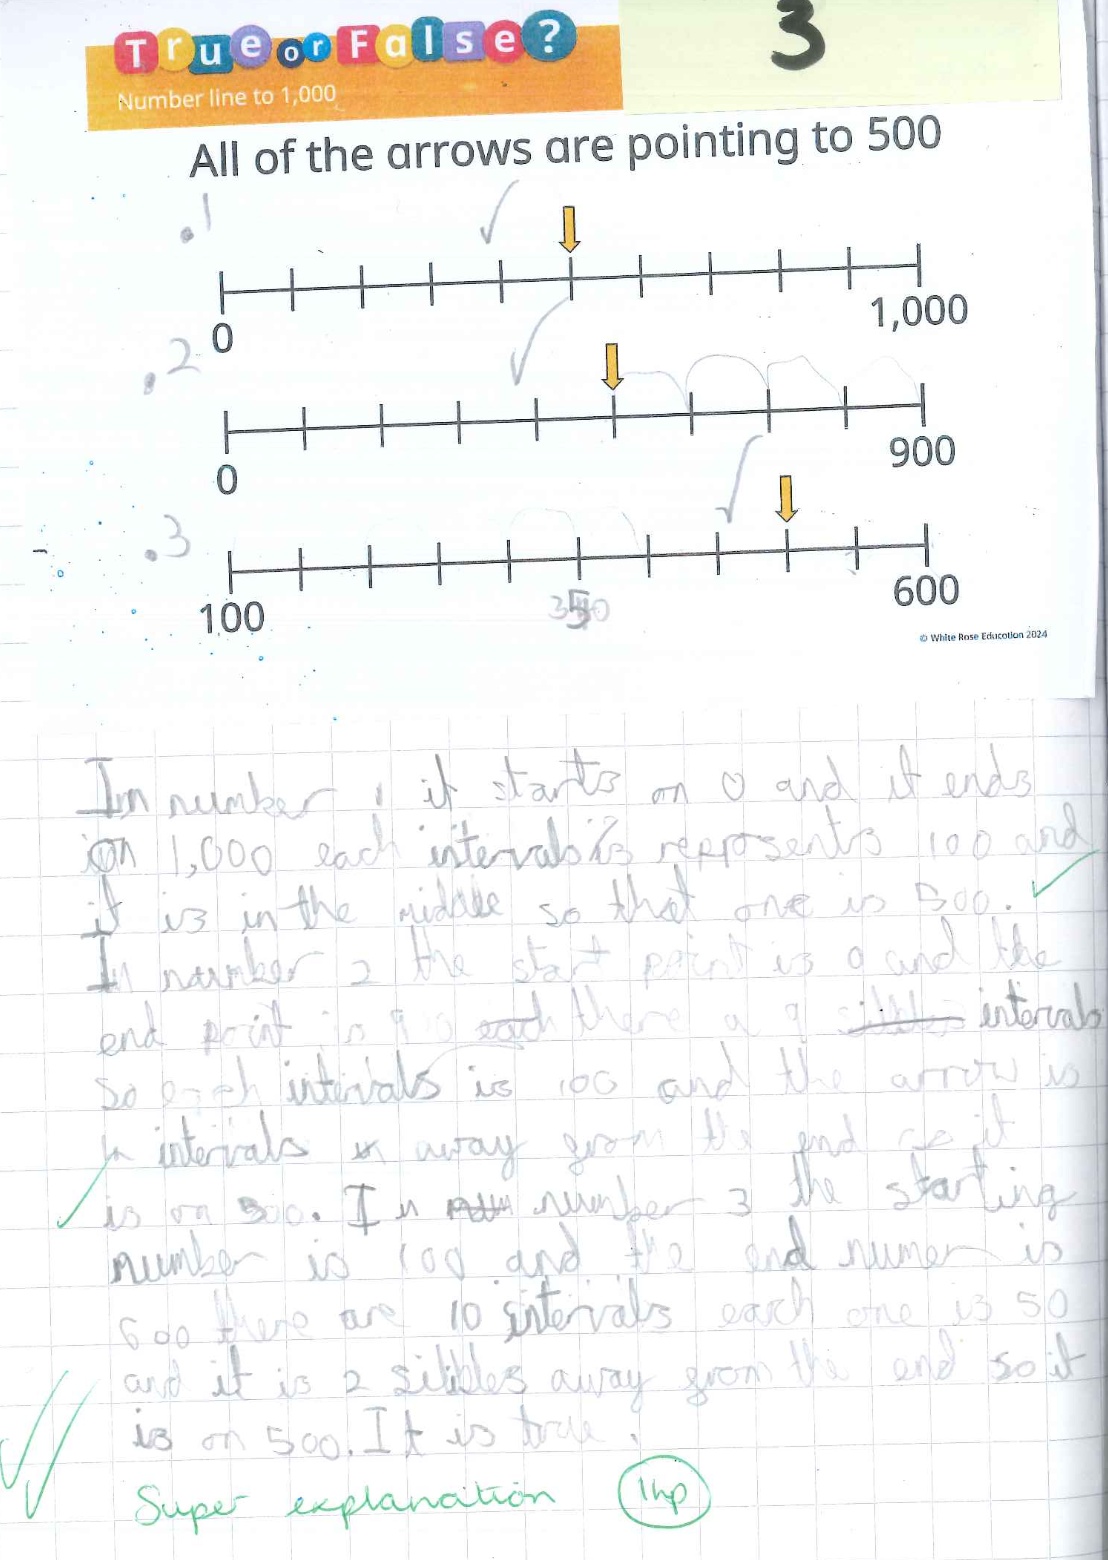 True or False?
3
Number line to 1,000
All of the arrows are pointing to 500
.1
0
1,000
.2
0
900
.3
100
350
600
© White Rose Education 2024
In number 1 it starts on 0 and it ends
on 1,000 each intervals is represents 100 and
it is in the middle so that one is 500.
In number 2 the start point is 0 and the
end point is 900 each there a 9 intervals
so each intervals is 100 and the arrow is
4 intervals away from the end so it
is on 500. In num number 3 the starting
number is 100 and the end numer is
600 there are 10 intervals each one is 50
and it is 2 sibbles away from the end so it
is on 500. It is true.
Super explanation 1hp